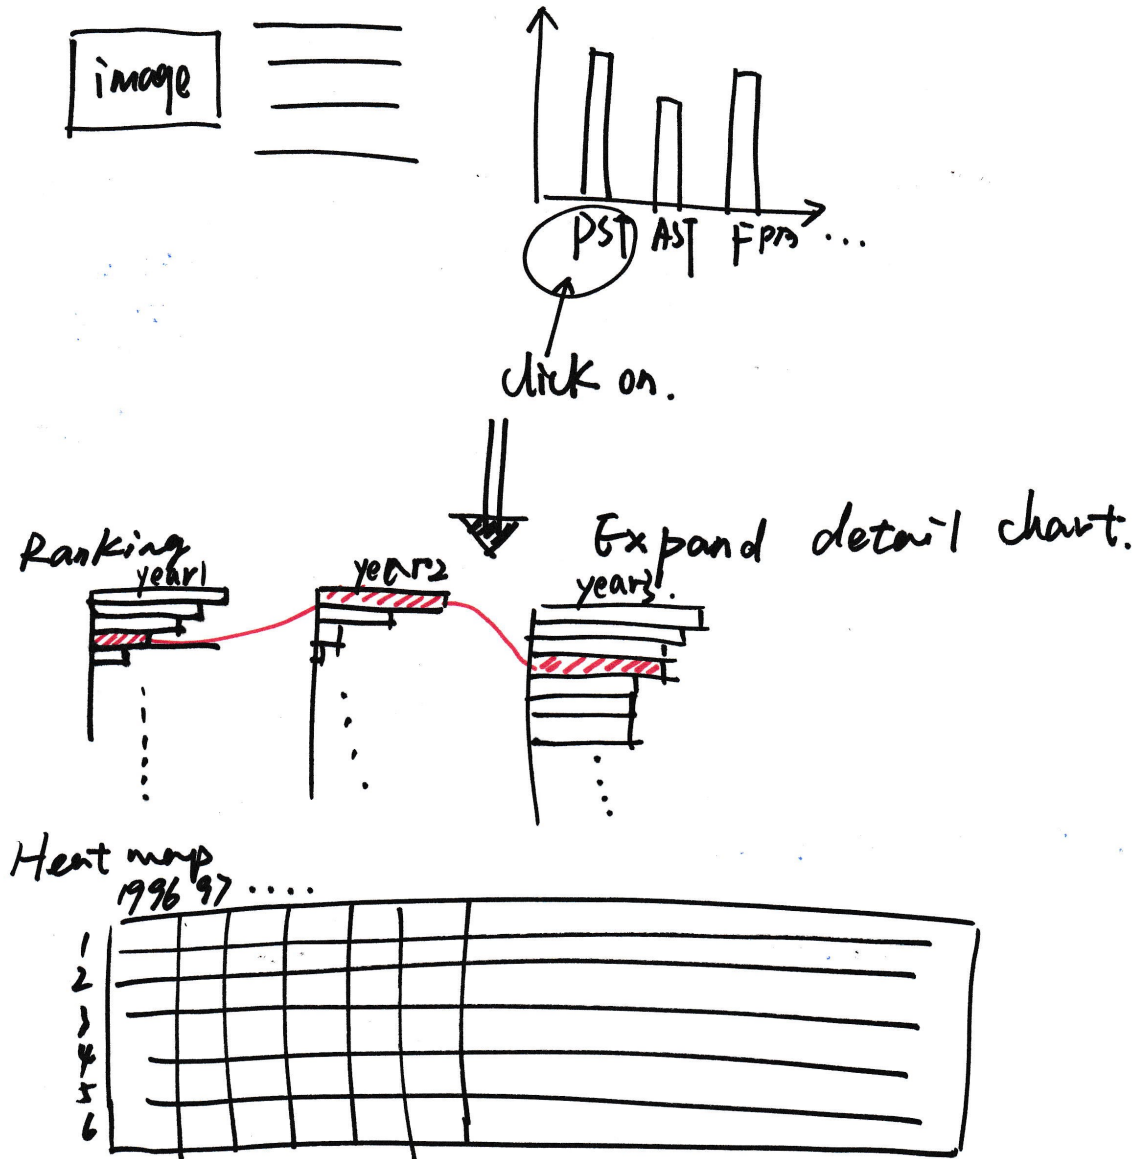 image
PST AST FPM ...
click on.
Expand detail chart.
Ranking
year1 year2 year3.
Heat map
1996 97 ....
1
2
3
4
5
6